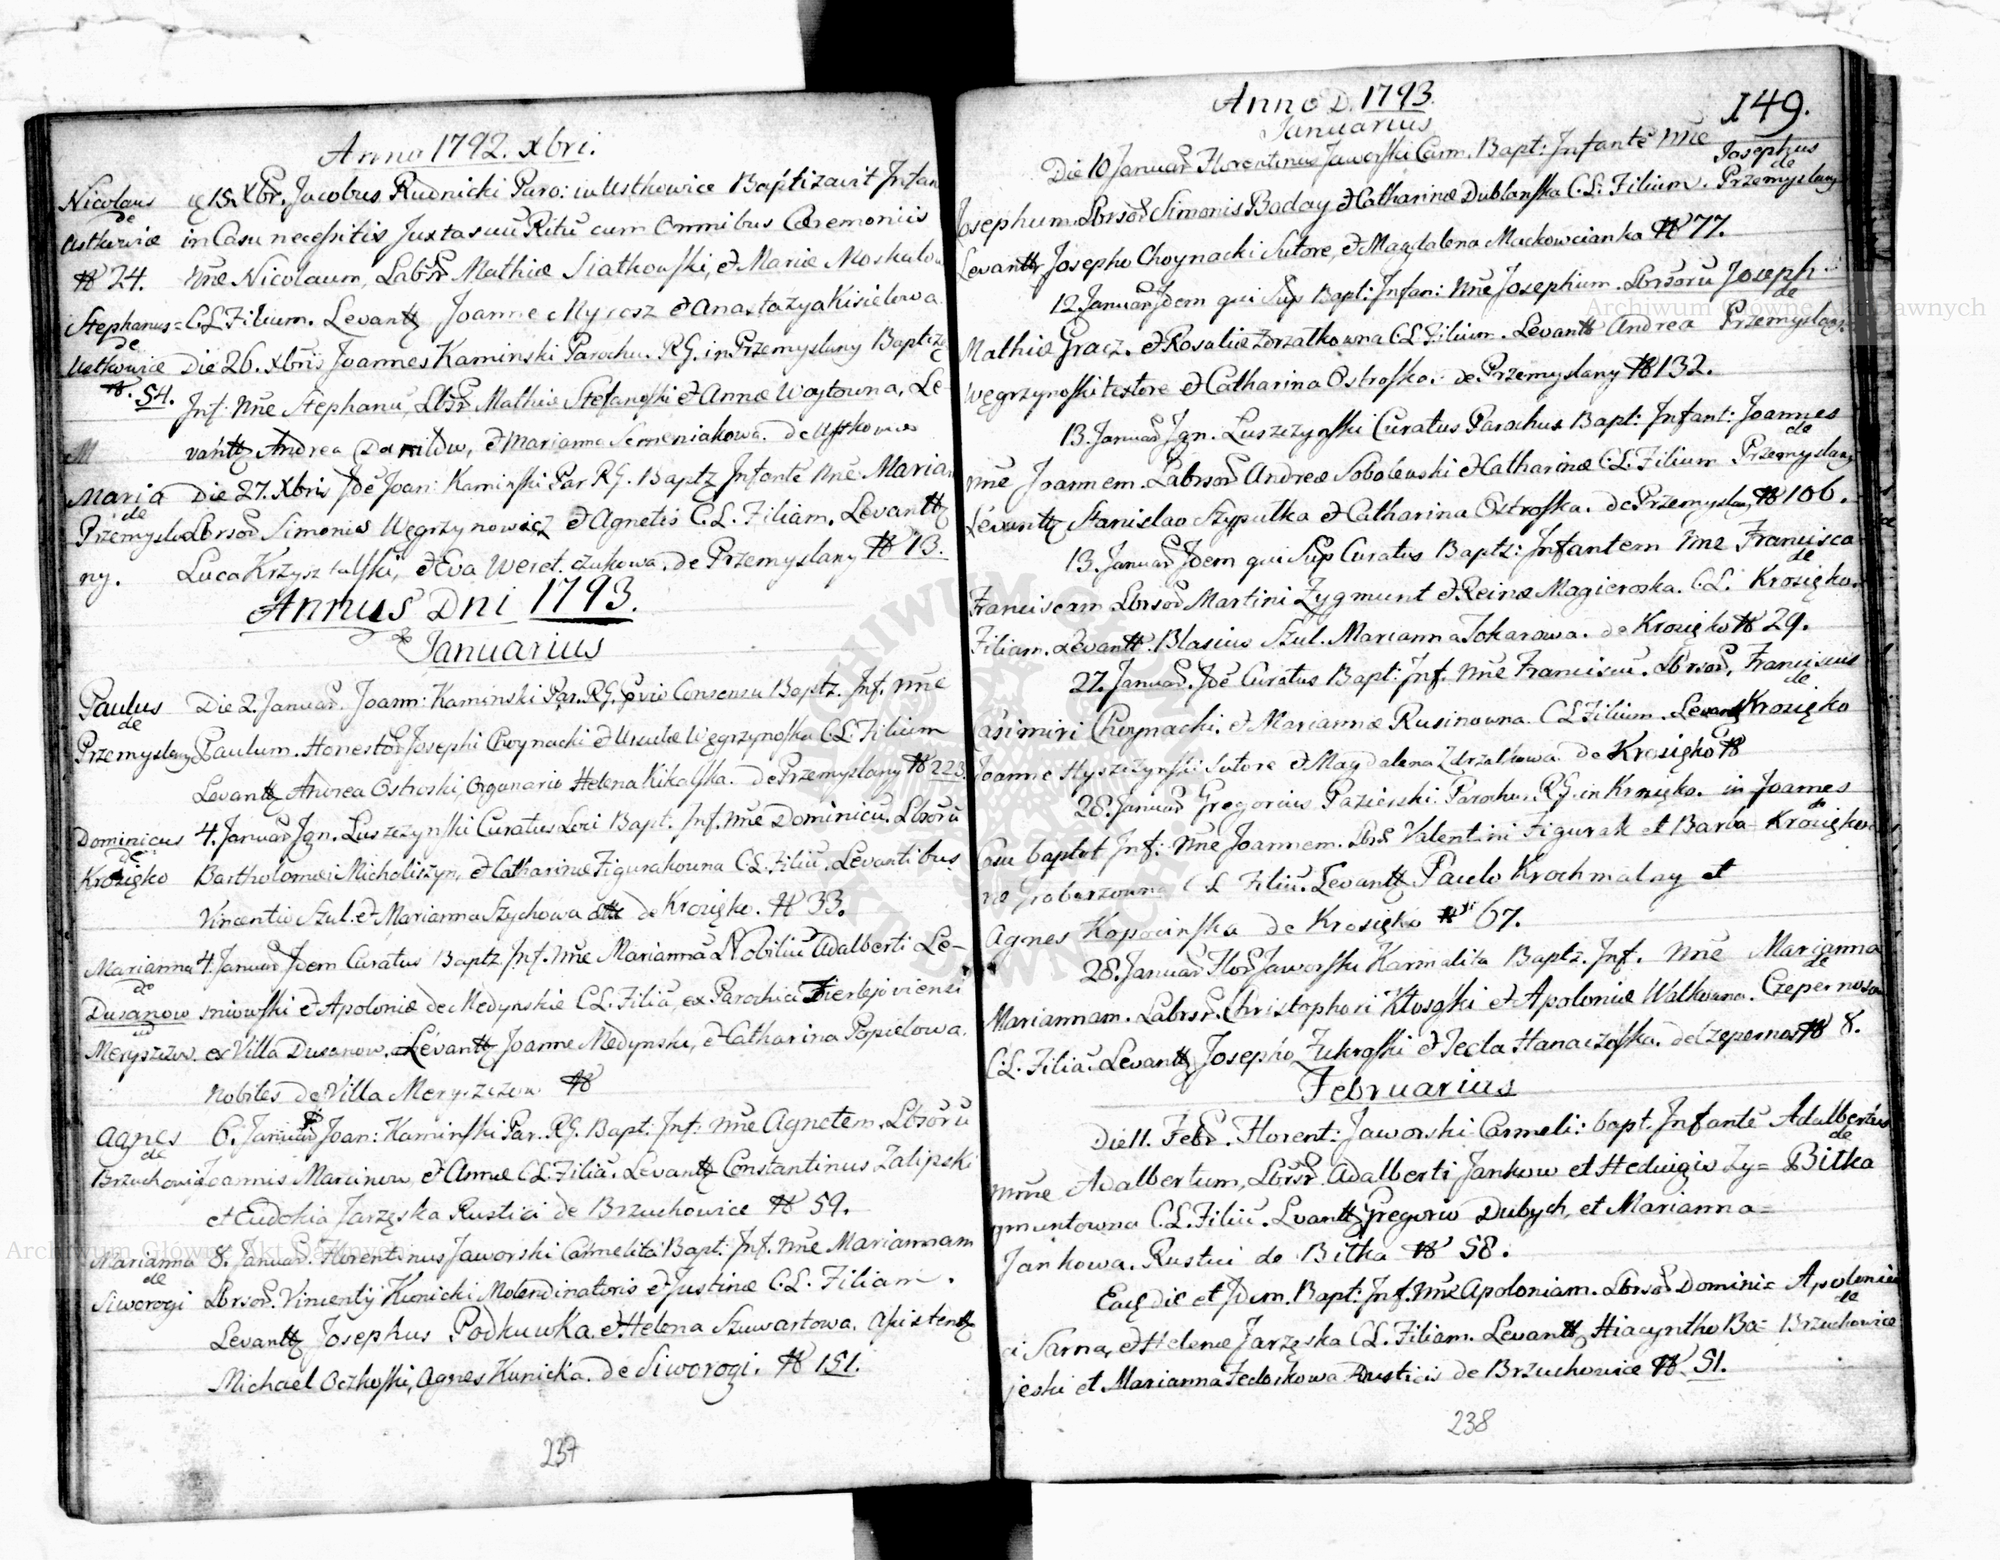 Anno 1792. Xbri.
Nicolaus de Ustkowice № 24.
15. Xbr. Jacobus Rudnicki Paro: in Ustkowice Baptizavit Infan
in Casu necessitis Juxta suū Ritū cum Omnibus Cæremoniis
Nne Nicolaum, Labsr Mathiæ Siatkowski, & Mariæ Moskalow
C.L. Filium. Levantt Joanne Myrosz & Anastazya Kisielowa
Stephanus de Ustkowice № 54.
Die 26. Xbris Joannes Kaminski Parochu. R.G. in Przemyslany Baptiz
Inf. Nne Stephanū, Lbsr Mathiæ Stefanoski & Annæ Woytowna, Le
vantt Andrea Danilow, & Marianna Semeniakowa. de Ustkowice
M
Maria de Przemyslany.
Die 27. Xbris Jdē Joan: Kaminski Par R.G. Baptz Infantē Nne Mariam
Lbrsor Simonis Węgrzynowicz & Agnetis C.L. Filiam. Levantt
Luca Krzysztalski, & Eva Weret. czukowa. de Przemyslany № 13.
Annus Dni 1793.
Januarius
Paulus de Przemyslany
Die 2. Januar. Joann: Kaminski Par. R.G. prvio Consensu Baptz. Inf. Nne
Paulum. Honestor Josephi Choynacki & Ursulæ Węgrzynoska C.L. Filium
Levantt Andrea Ostroski, Organario Helena Kikalska. de Przemyslany № 223.
Dominicus de Krosięko
4. Januar Ign. Luszczynski Curatus Loci Bapt. Inf. Nne Dominicū. Lbsorū
Bartholomæi Micholiszyn, & Catharinæ Figurakowna C.L. Filiū. Levantibus
Vincentio Szul. & Marianna Szychowa de Krosięko. № 33.
Marianna de Dusanow Meryszczow.
4. Januar Jdem Curatus Baptz Inf. Nne Mariannā Nobiliū Adalberti Le-
sniowski & Apoloniæ de Medynskie C.L. Filiā, ex Parochia Fierlejoviensi
ex Villa Dusanow. Levantt Joanne Medynski, & Catharina Popielowa.
Nobiles de Villa Meryszczow №
Agnes de Brzuchowice
6. Januar Joan: Kaminski Par. R.G. Bapt: Inf: Nne Agnetem. Lbsorū
Joannis Marcinow, & Annæ C.L. Filiā. Levantt Constantinus Zalipski
et Eudokia Jarzęska Rustici de Brzuchowice № 59.
Marianna de Siworogi
8. Januar. Florentinus Jaworski Carmelita Bapt. Inf. Nne Mariannam
Lbrsor. Vincentij Kunicki Molendinatoris & Justinæ C.L. Filiam.
Levantt Josephus Podkuwka & Helena Szuwartowa. Asistentt
Michaël Oczkoski, Agnes Kunicka. de Siworogi. № 151.
237
Anno D. 1793.
149.
Januarius
Josephus de Przemyslany
Die 10 Januar Florentinus Jaworski Carm. Bapt: Infantē Nne
Josephum. Lbrsor Simonis Baday & Catharinæ Dublanska C.L. Filium.
Levantt Josepho Choynacki Sutore, & Magdalena Mackowcianka № 77.
Joseph de Przemyslany
12. Januar Jdem qui Sup Bapt: Infan: Nne Josephum. Lbrsorū
Mathiæ Gracz. & Rosaliæ Zdrzałkowna C.L. Filium. Levantt Andrea
Węgrzynoski textore & Catharina Ostroska. de Przemyslany № 132.
Joannes de Przemyslany
13. Januar Ign. Luszczynski Curatus Parochus Bapt: Infant:
Nne Joannem. Labrsor Andreæ Sobolewski & Catharinæ C.L. Filium
Levantt Stanislao Szypułka & Catharina Ostroska. de Przemyslany № 106.
Francisca de Krosięko
13. Januar Jdem qui Sup Curatus Baptz: Infantem Nne
Franciscam Lbrsor Martini Zygmunt & Reinæ Magieroska. C.L.
Filiam. Levantt. Blasius Szul. Marianna Tokarowa. de Krosięko № 29.
Franciscus de Krosięko
27. Januar. Jdē Curatus Bapt: Inf. Nne Franciscū. Lbrsor,
Casimiri Choynacki. & Mariannæ Rusinowna. C.L. Filium. Levantt
Joanne Hyszczynski Sutore & Magdalena Zdrzalkowa de Krosięko №
Joannes de Krosięko
28. Januar Gregorius Pazierski Parochus. R.G. in Krosięko. in
Casu baptzt Inf: Nne Joannem. Lbrs Valentini Figurak et Barba-
ræ Graborzowna C L Filiū. Levantt Paulo Krochmalny et
Agnes Kopocinska de Krosięko № 67.
Marianna de Czepernosow
28. Januar Flor Jaworski Karmelita Baptz. Inf. Nne
Mariannam. Labrsr. Christophori Kłososki & Apoloniæ Walkowna.
C.L. Filiā. Levantt Josepho Zukroski & Tecla Hanaczoska. de Czepernos № 8.
Februarius
Adalbertus de Bitka
Die 11. Febr. Florent: Jaworski Carmeli: bapt. Infantē
Nnne Adalbertum, Lbrsr. Adalberti Jankow et Hedwigis Zy=
gmuntowna C.L. Filiū. Lvantt Gregorio Dubych, et Marianna=
Jankowa. Rustici de Bitka № 58.
Apolonia de Brzuchowice
Eaq die et Jdem. Bapt: Inf. Nne Apoloniam. Lbrsor Domini=
ci Sarna, & Helenæ Jarzęska C.L. Filiam. Levantt Hiacyntho Ba=
jeski et Marianna Fedoskowa Rusticis de Brzuchowice № 51.
238
Archiwum Główne Akt Dawnych
Archiwum Główne Akt Dawnych
ARCHIWUM GŁÓWNE AKT DAWNYCH